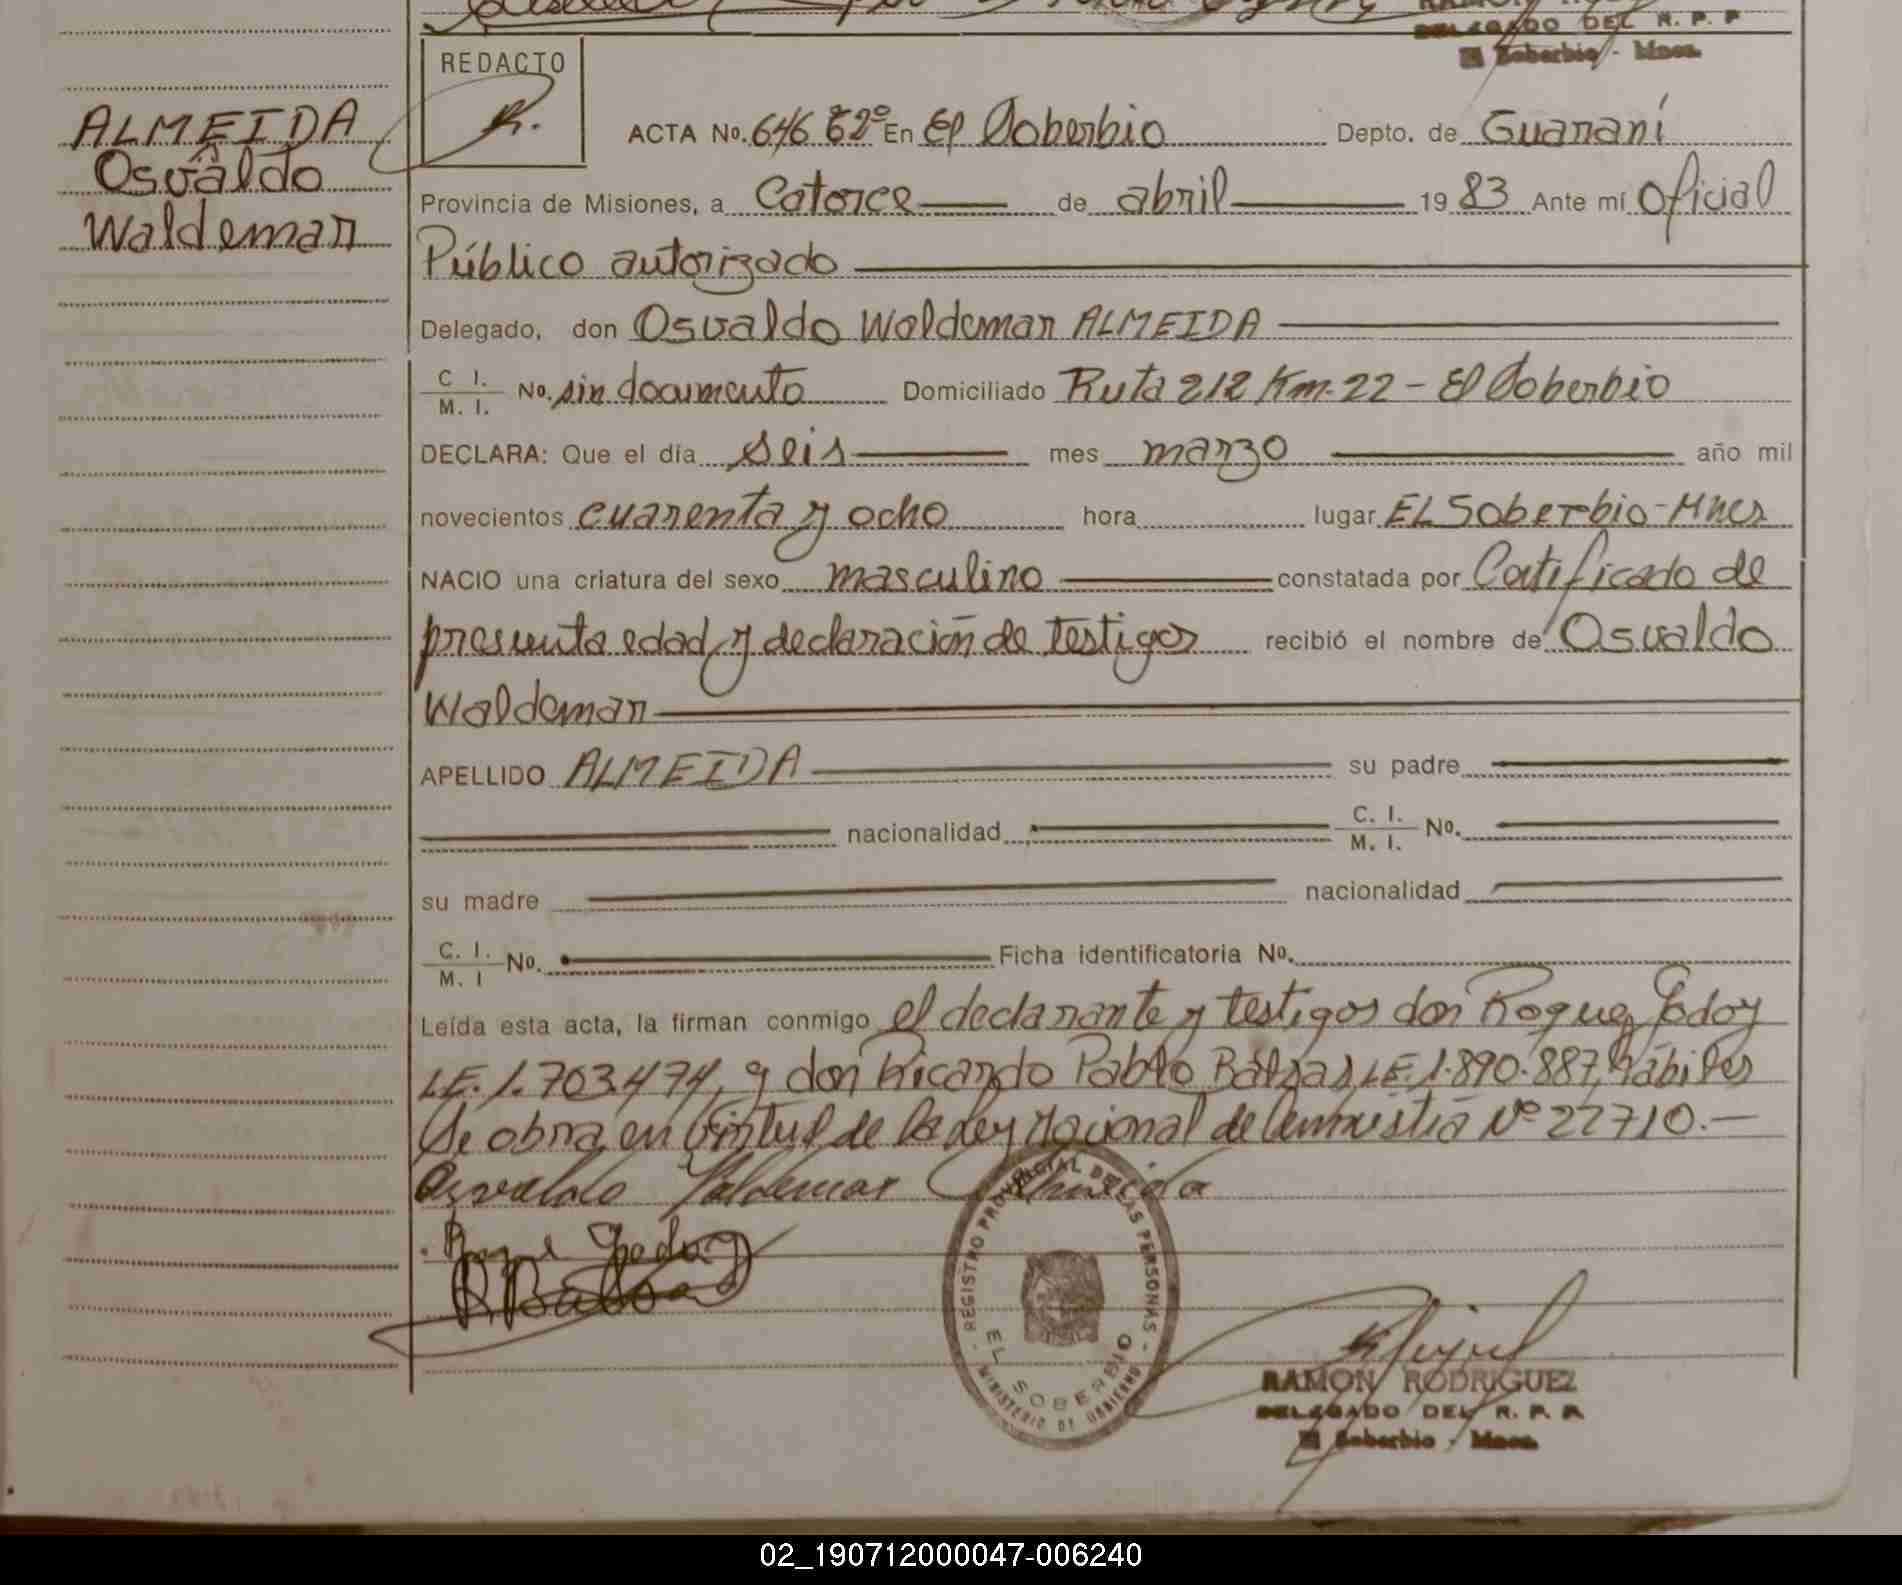 DELEGADO DEL R. P. P
El Soberbio - Mnes.
REDACTO
ALMEIDA
Osvaldo
Waldemar
ACTA No. 646 Tº 2º En El Soberbio Depto. de Guaraní
Provincia de Misiones, a Catorce de abril 19 83 Ante mí Oficial
Público autorizado
Delegado, don Osvaldo Waldemar ALMEIDA
C I. / M. I. No. sin documento Domiciliado Ruta 212 Km. 22 - El Soberbio
DECLARA: Que el día seis mes marzo año mil
novecientos cuarenta y ocho hora lugar EL Soberbio - Mnes
NACIO una criatura del sexo masculino constatada por Certificado de
presunta edad y declaración de testigos recibió el nombre de Osvaldo
Waldemar
APELLIDO ALMEIDA su padre
nacionalidad C. I. / M. I. No.
su madre nacionalidad
C. I. / M. I No. Ficha identificatoria No.
Leída esta acta, la firman conmigo el declarante y testigos don Roque Godoy
LE. 1.703.474, y don Ricardo Pablo LE. 1.890.887, hábiles
Se obra en virtud de la Ley Nacional de Amnistía Nº 22710.-
Osvaldo Valdemar Almeida
Roque Godoy
REGISTRO PROVINCIAL DE LAS PERSONAS
EL SOBERBIO
MINISTERIO DE GOBIERNO
RAMON RODRIGUEZ
DELEGADO DEL R. P. P.
El Soberbio - Mnes.
02_190712000047-006240